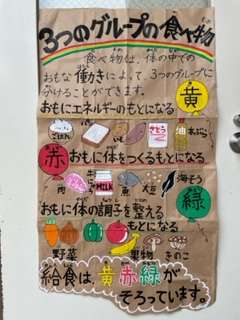 3つのグループの食べ物
食べ物は、体の中での
おもな働きによって、3つのグループに
分けることができます。
黄
おもにエネルギーのもとになる
ごはん パン いも さとう 油
赤
おもに体をつくるもとになる
肉 魚 MILK 卵 大豆 海そう
緑
おもに体の調子を整える
野菜 果物 きのこ
給食は、黄赤緑が
そろっています。